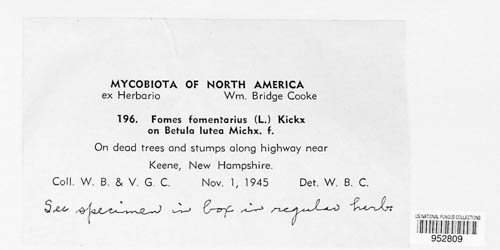 MYCOBIOTA OF NORTH AMERICA
ex Herbario Wm. Bridge Cooke
196. Fomes fomentarius (L.) Kickx
on Betula lutea Michx. f.
On dead trees and stumps along highway near
Keene, New Hampshire.
Coll. W. B. & V. G. C. Nov. 1, 1945 Det. W. B. C.
See specimen in box in regular herb.
US NATIONAL FUNGUS COLLECTIONS
952809